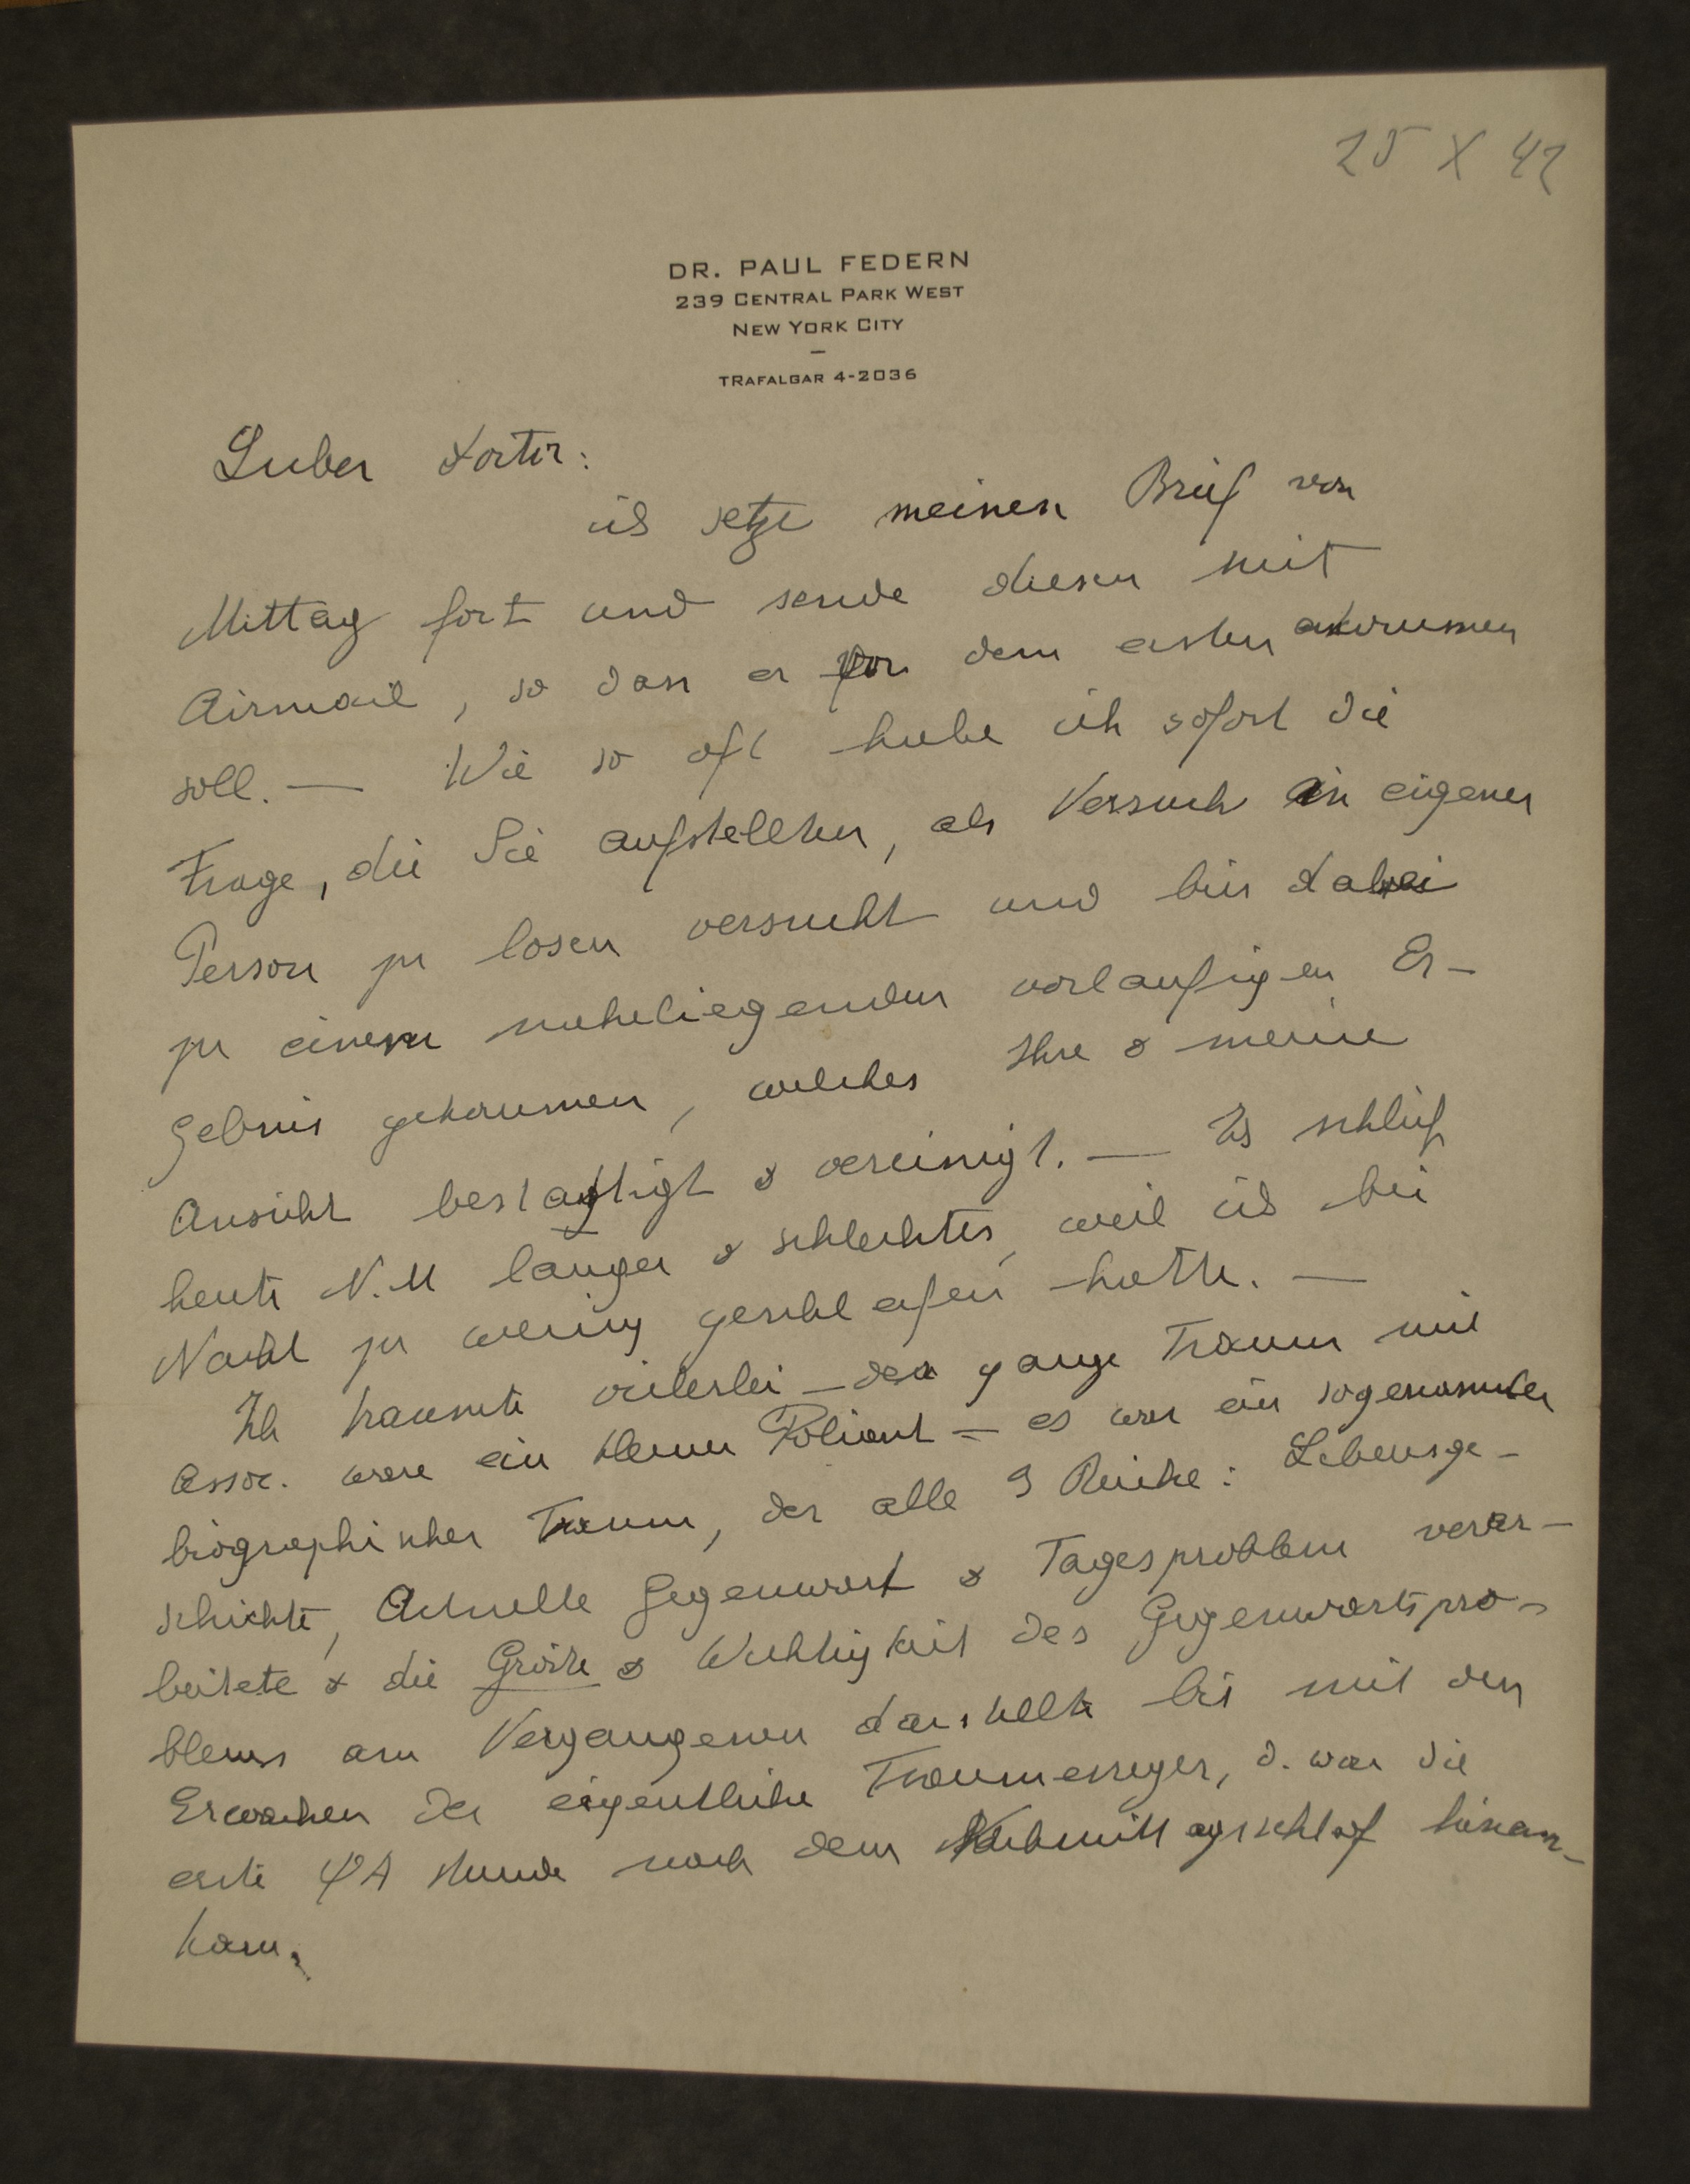 25 X 42
DR. PAUL FEDERN
239 CENTRAL PARK WEST
NEW YORK CITY
TRAFALGAR 4-2036
Lieber Doktor:
ich setze meinen Brief von
Mittag fort und sende diesen mit
Airmail, so dass er vor dem ersten ankommen
soll. — Wie so oft habe ich sofort die
Frage, die Sie aufstellten, als Versuch an eigener
Person zu losen versucht und bin dabei
zu einem naheliegenden vorlaufigen Er-
gebnis gekommen, welches Ihre & meine
Ansicht bestätigt & vereinigt. — Ich schlief
heute N.M länger & schlechter, weil ich bei
Nacht zu wenig geschlafen hatte. —
Ich traumte vielerlei – der ganze Traum mit
Assoc. wäre ein kleiner Foliant – es war ein sogenannter
biographischer Traum, der alle 3 Reiche: Lebensge-
schichte, Actuelle Gegenwart & Tagesproblem verar-
beitete & die Grösse & Wichtigkeit des Gegenwartspro-
blems am Vergangenen darstellte bis mit dem
Erwachen der eigentliche Traumerreger, d. war die
erste ΨA Stunde nach dem Nachmittagsschlaf hinan-
kam.